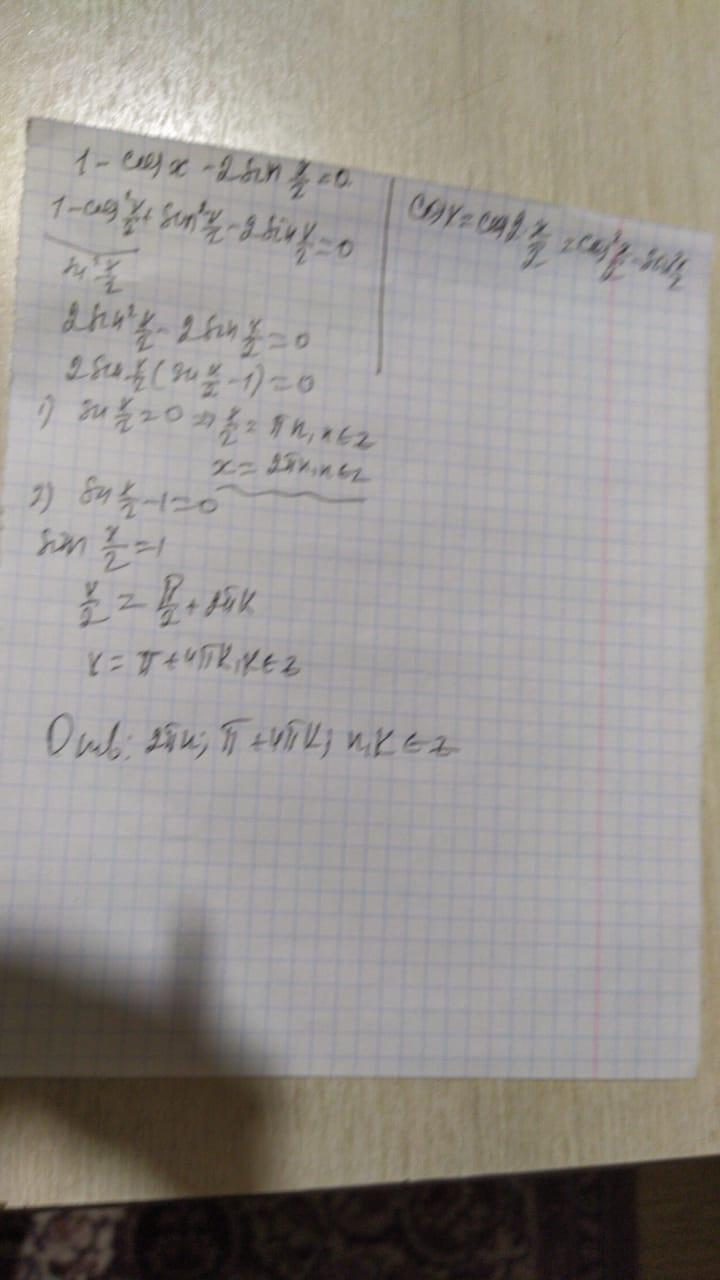 1 - cos x - 2 sin x/2 = 0
1 - cos² x/2 + sin² x/2 - 2 sin x/2 = 0
sin² x/2
2 sin² x/2 - 2 sin x/2 = 0
2 sin x/2 (sin x/2 - 1) = 0
1) sin x/2 = 0 => x/2 = πn, n ∈ z
x = 2πn, n ∈ z
2) sin x/2 - 1 = 0
sin x/2 = 1
x/2 = π/2 + 2πk
x = π + 4πk, k ∈ z
Отв: 2πn; π + 4πk; n, k ∈ z
cos x = cos 2 · x/2 = cos² x/2 - sin² x/2